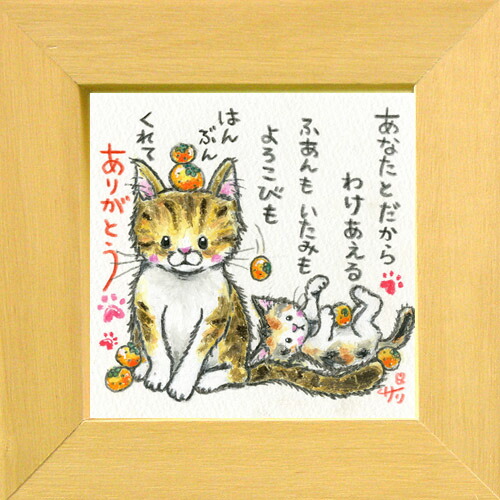 あなたとだから
わけあえる
ふあんも いたみも
よろこびも
はんぶん
くれて
ありがとう
サリ